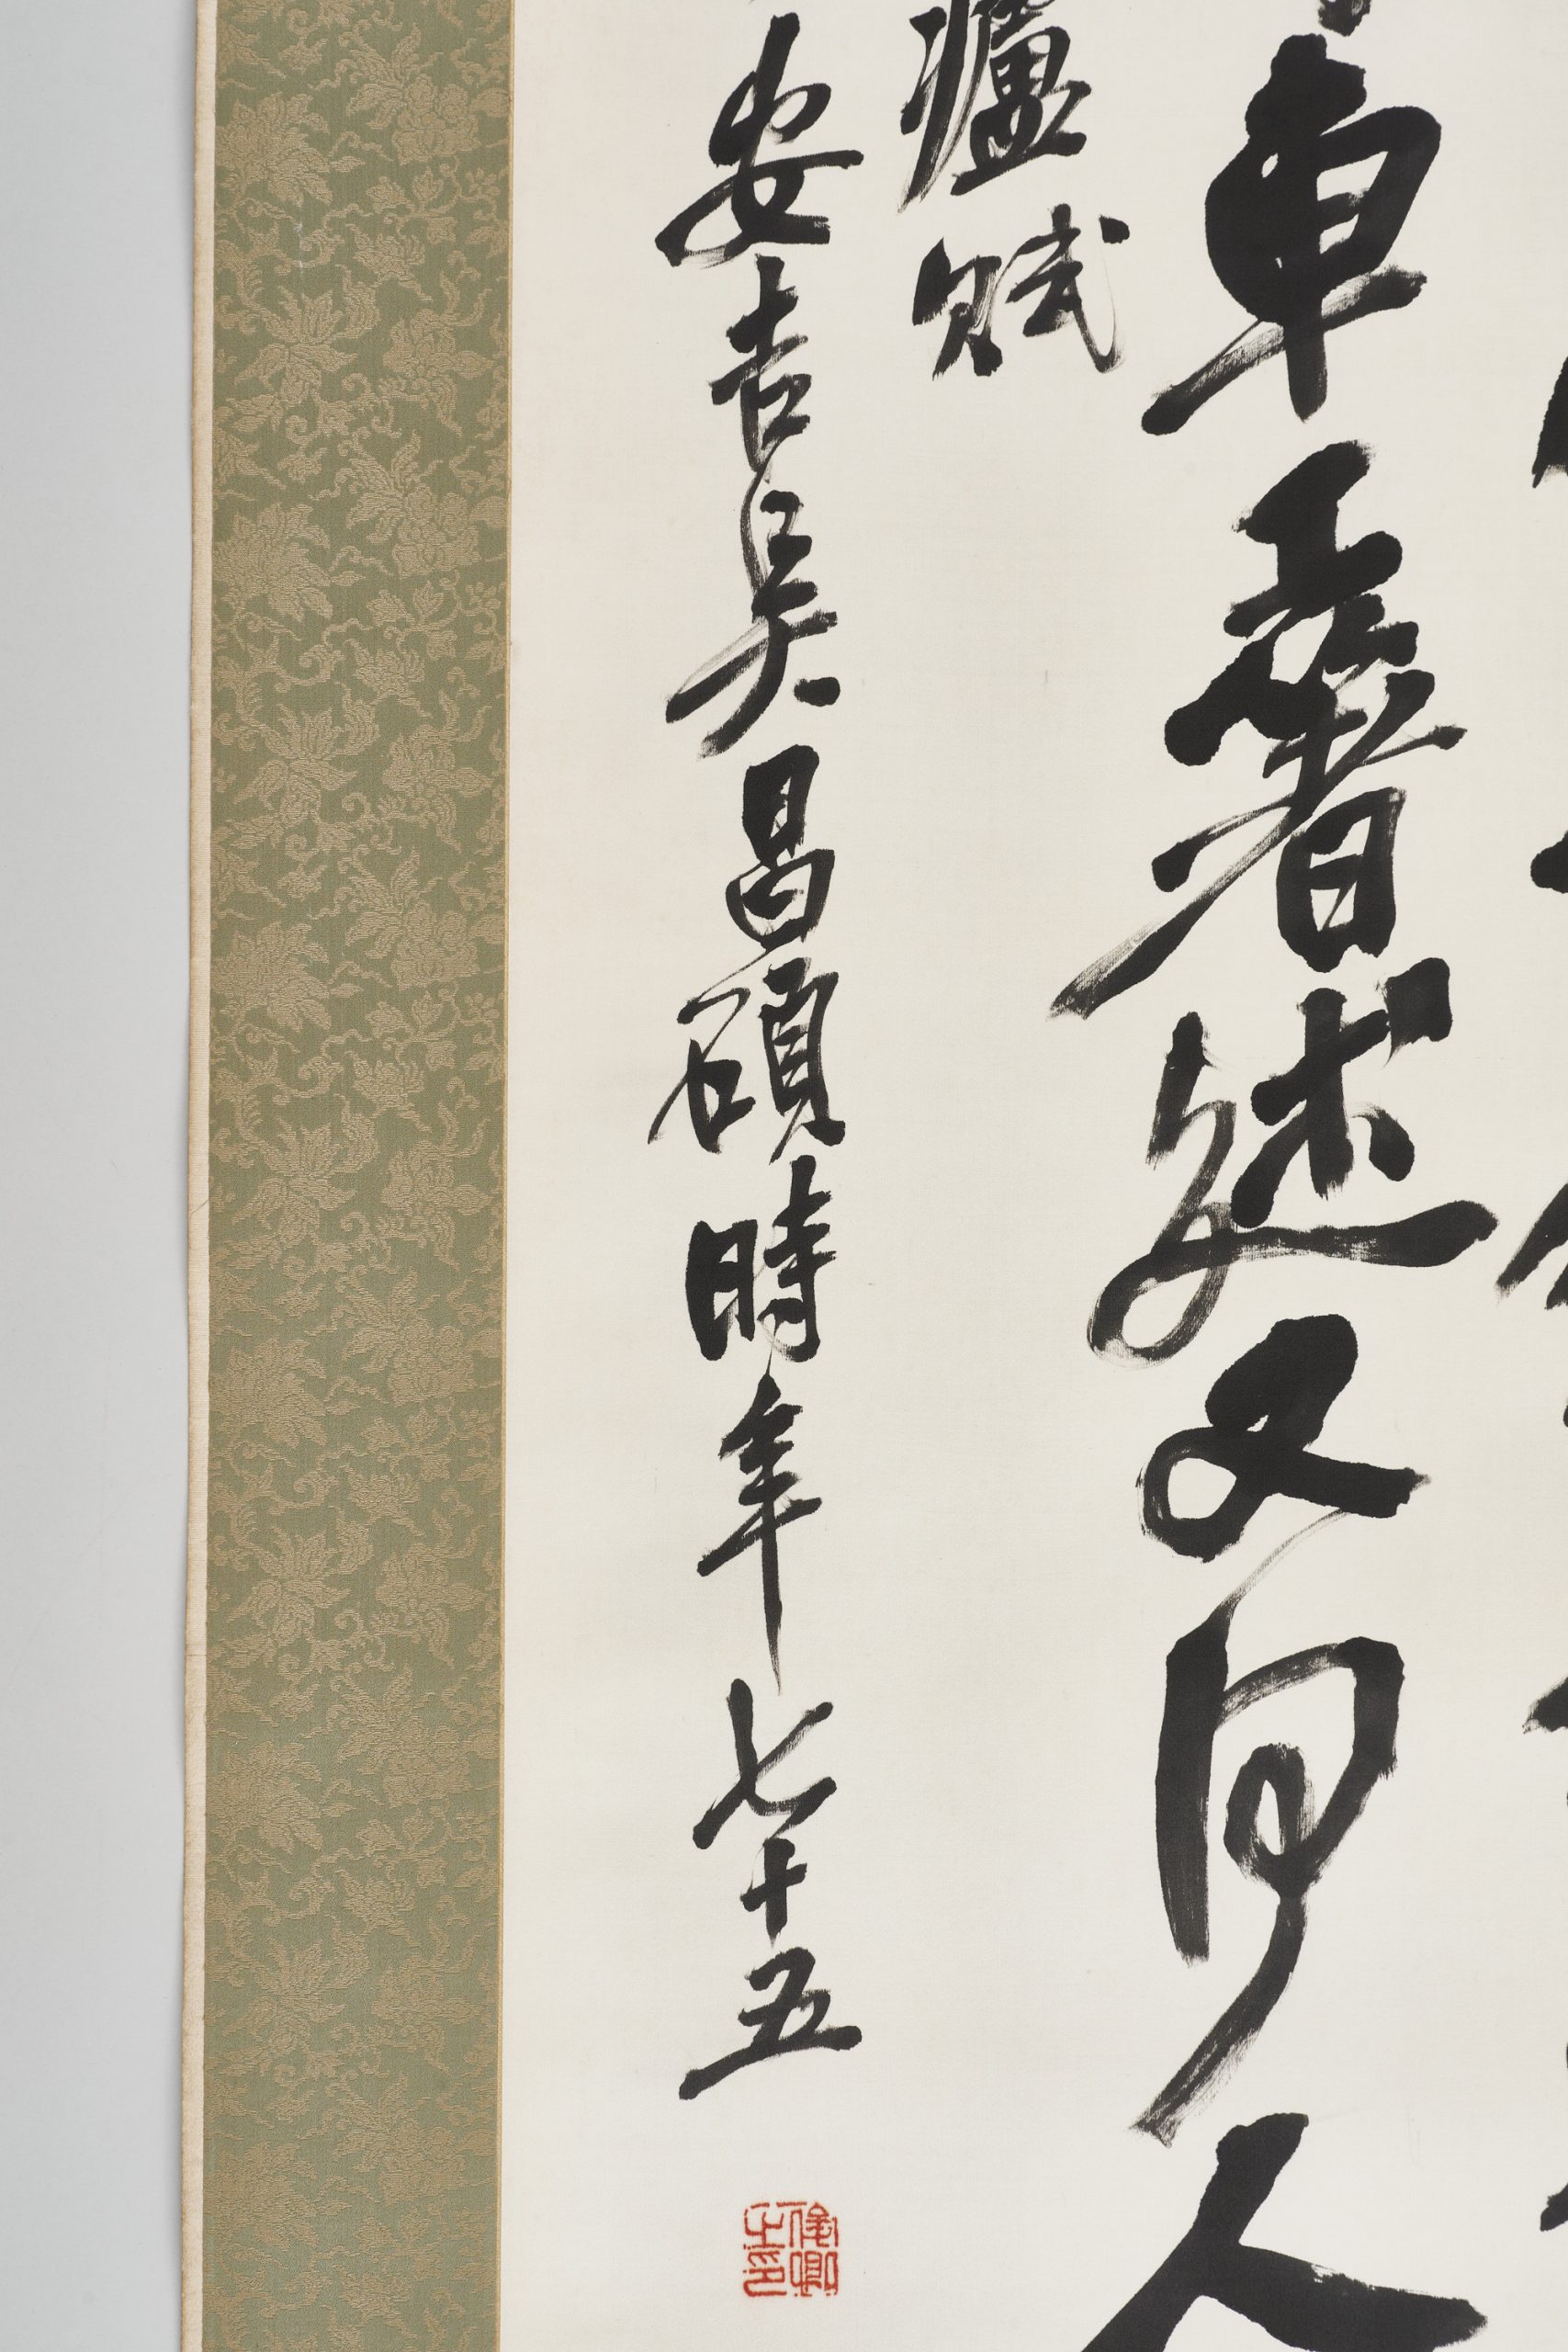 車著述又何人
賦
安吉吳昌碩時年七十五
俊卿之印